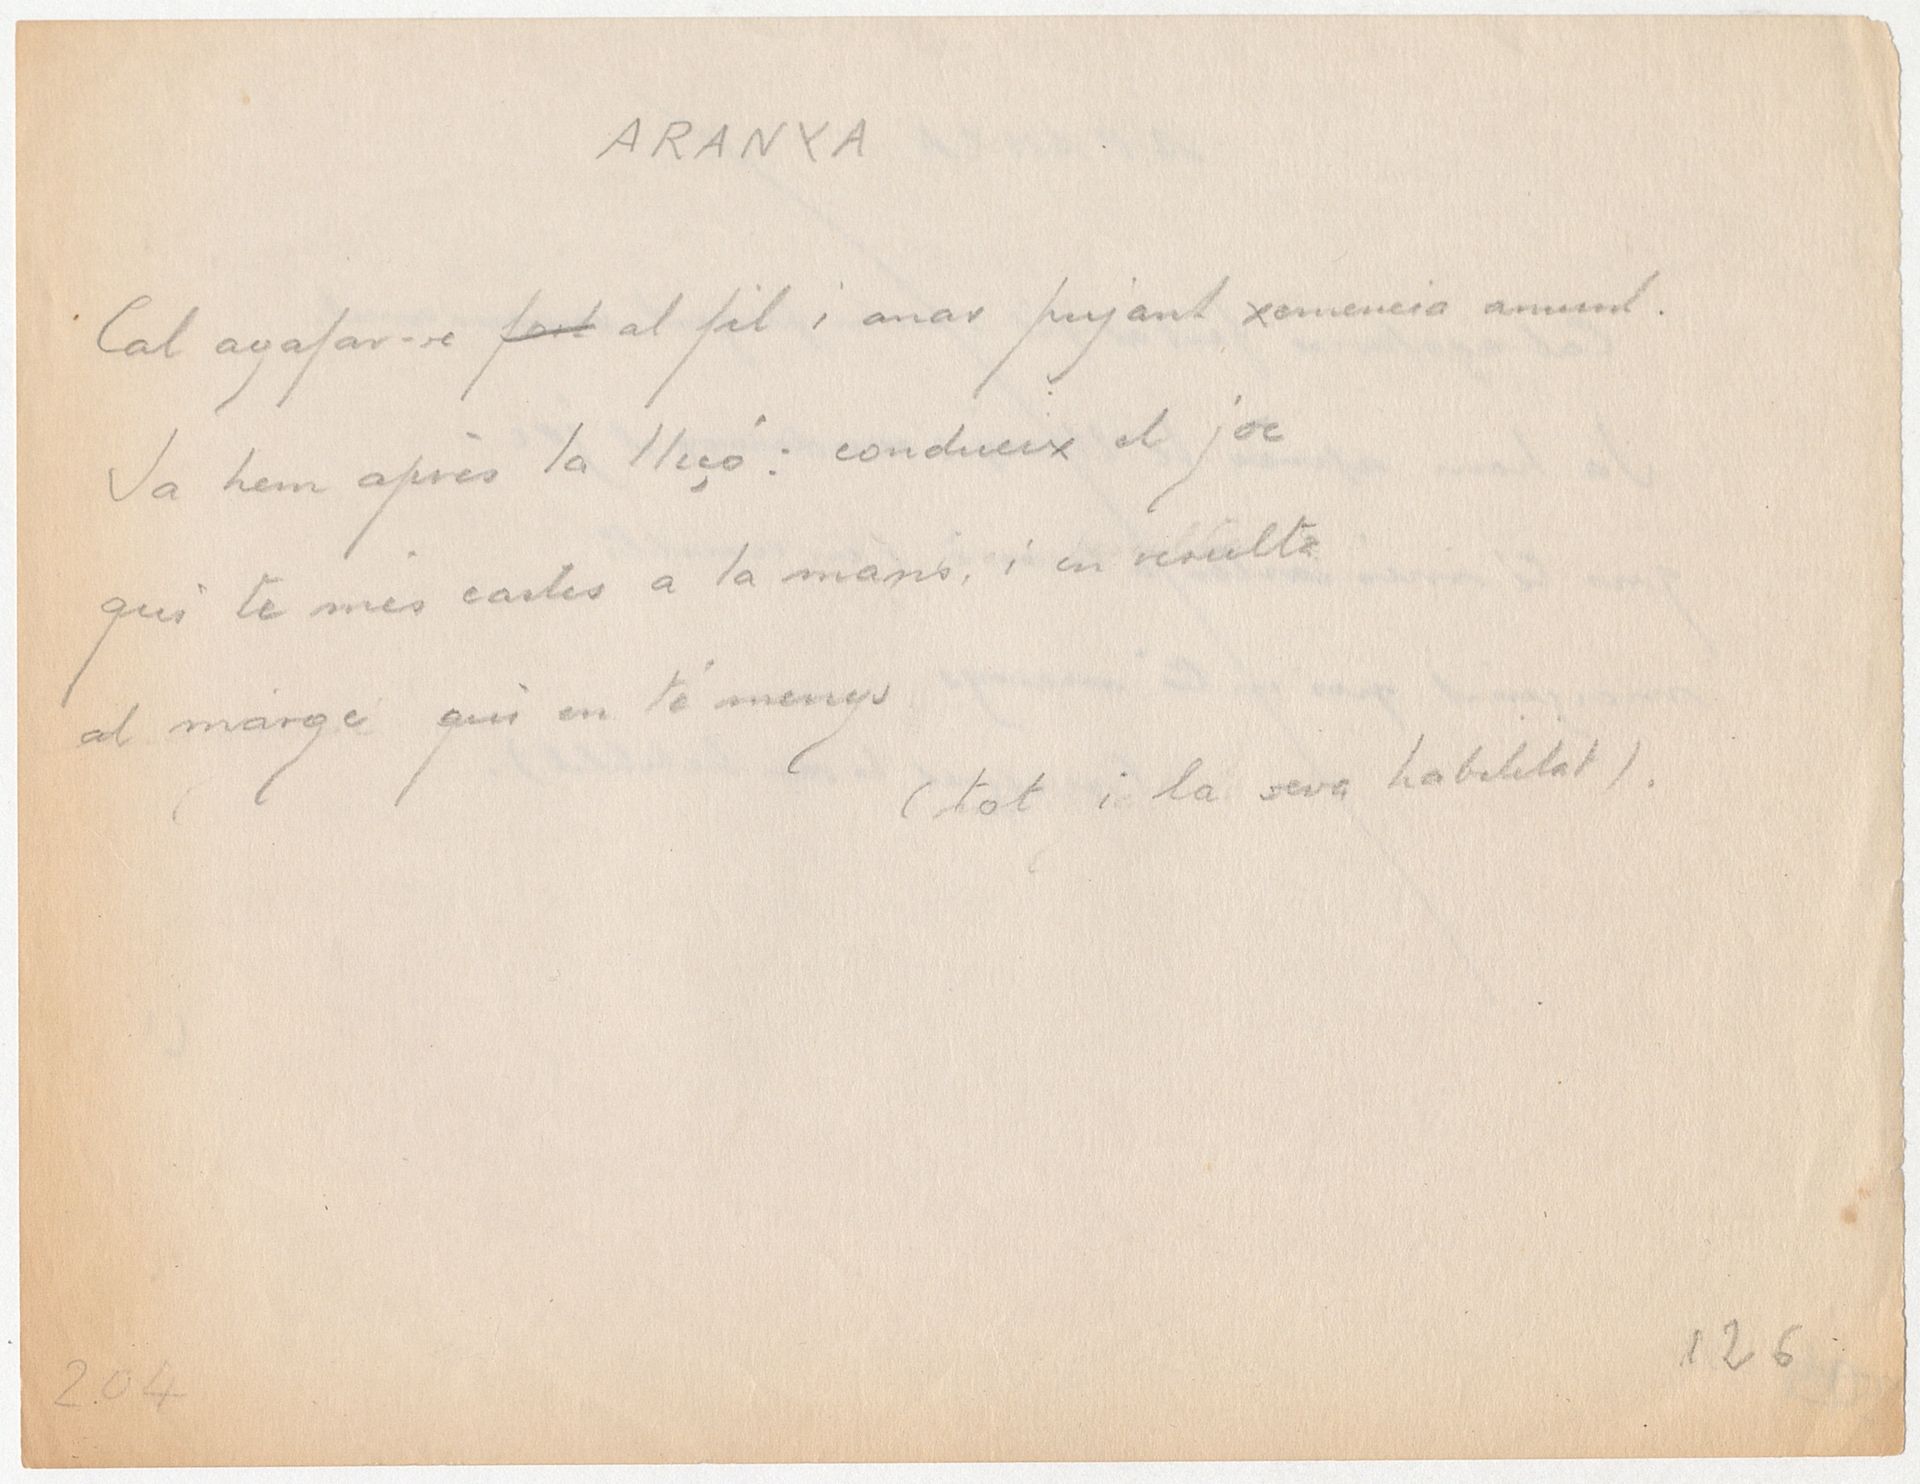 ARANYA
Cal agafar-se fort al fil i anar pujant xemeneia amunt.
Ja hem après la lliçó: condueix el joc
qui té més cartes a la mans, i en resulta
al marge qui en té menys
(tot i la seva habilitat).
126
204